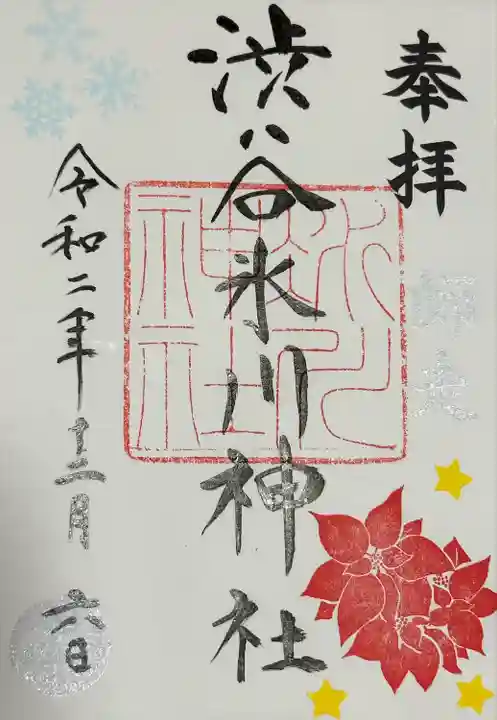 奉拝
渋谷氷川神社
氷川神社
令和二年十二月六日